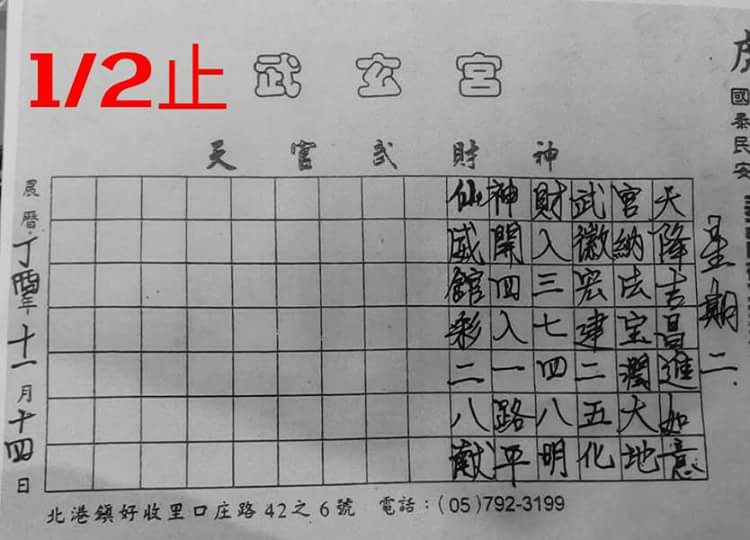 1/2止
武玄宮
天官武財神
國泰民安
星期二
天降吉昌進如意
官納法宝潤大地
武徽宏建二五化
財入三七四八明
神開四入一路平
仙威館彩二八獻
農曆丁酉年十一月十四日
北港鎮好收里口庄路42之6號 電話：(05)792-3199